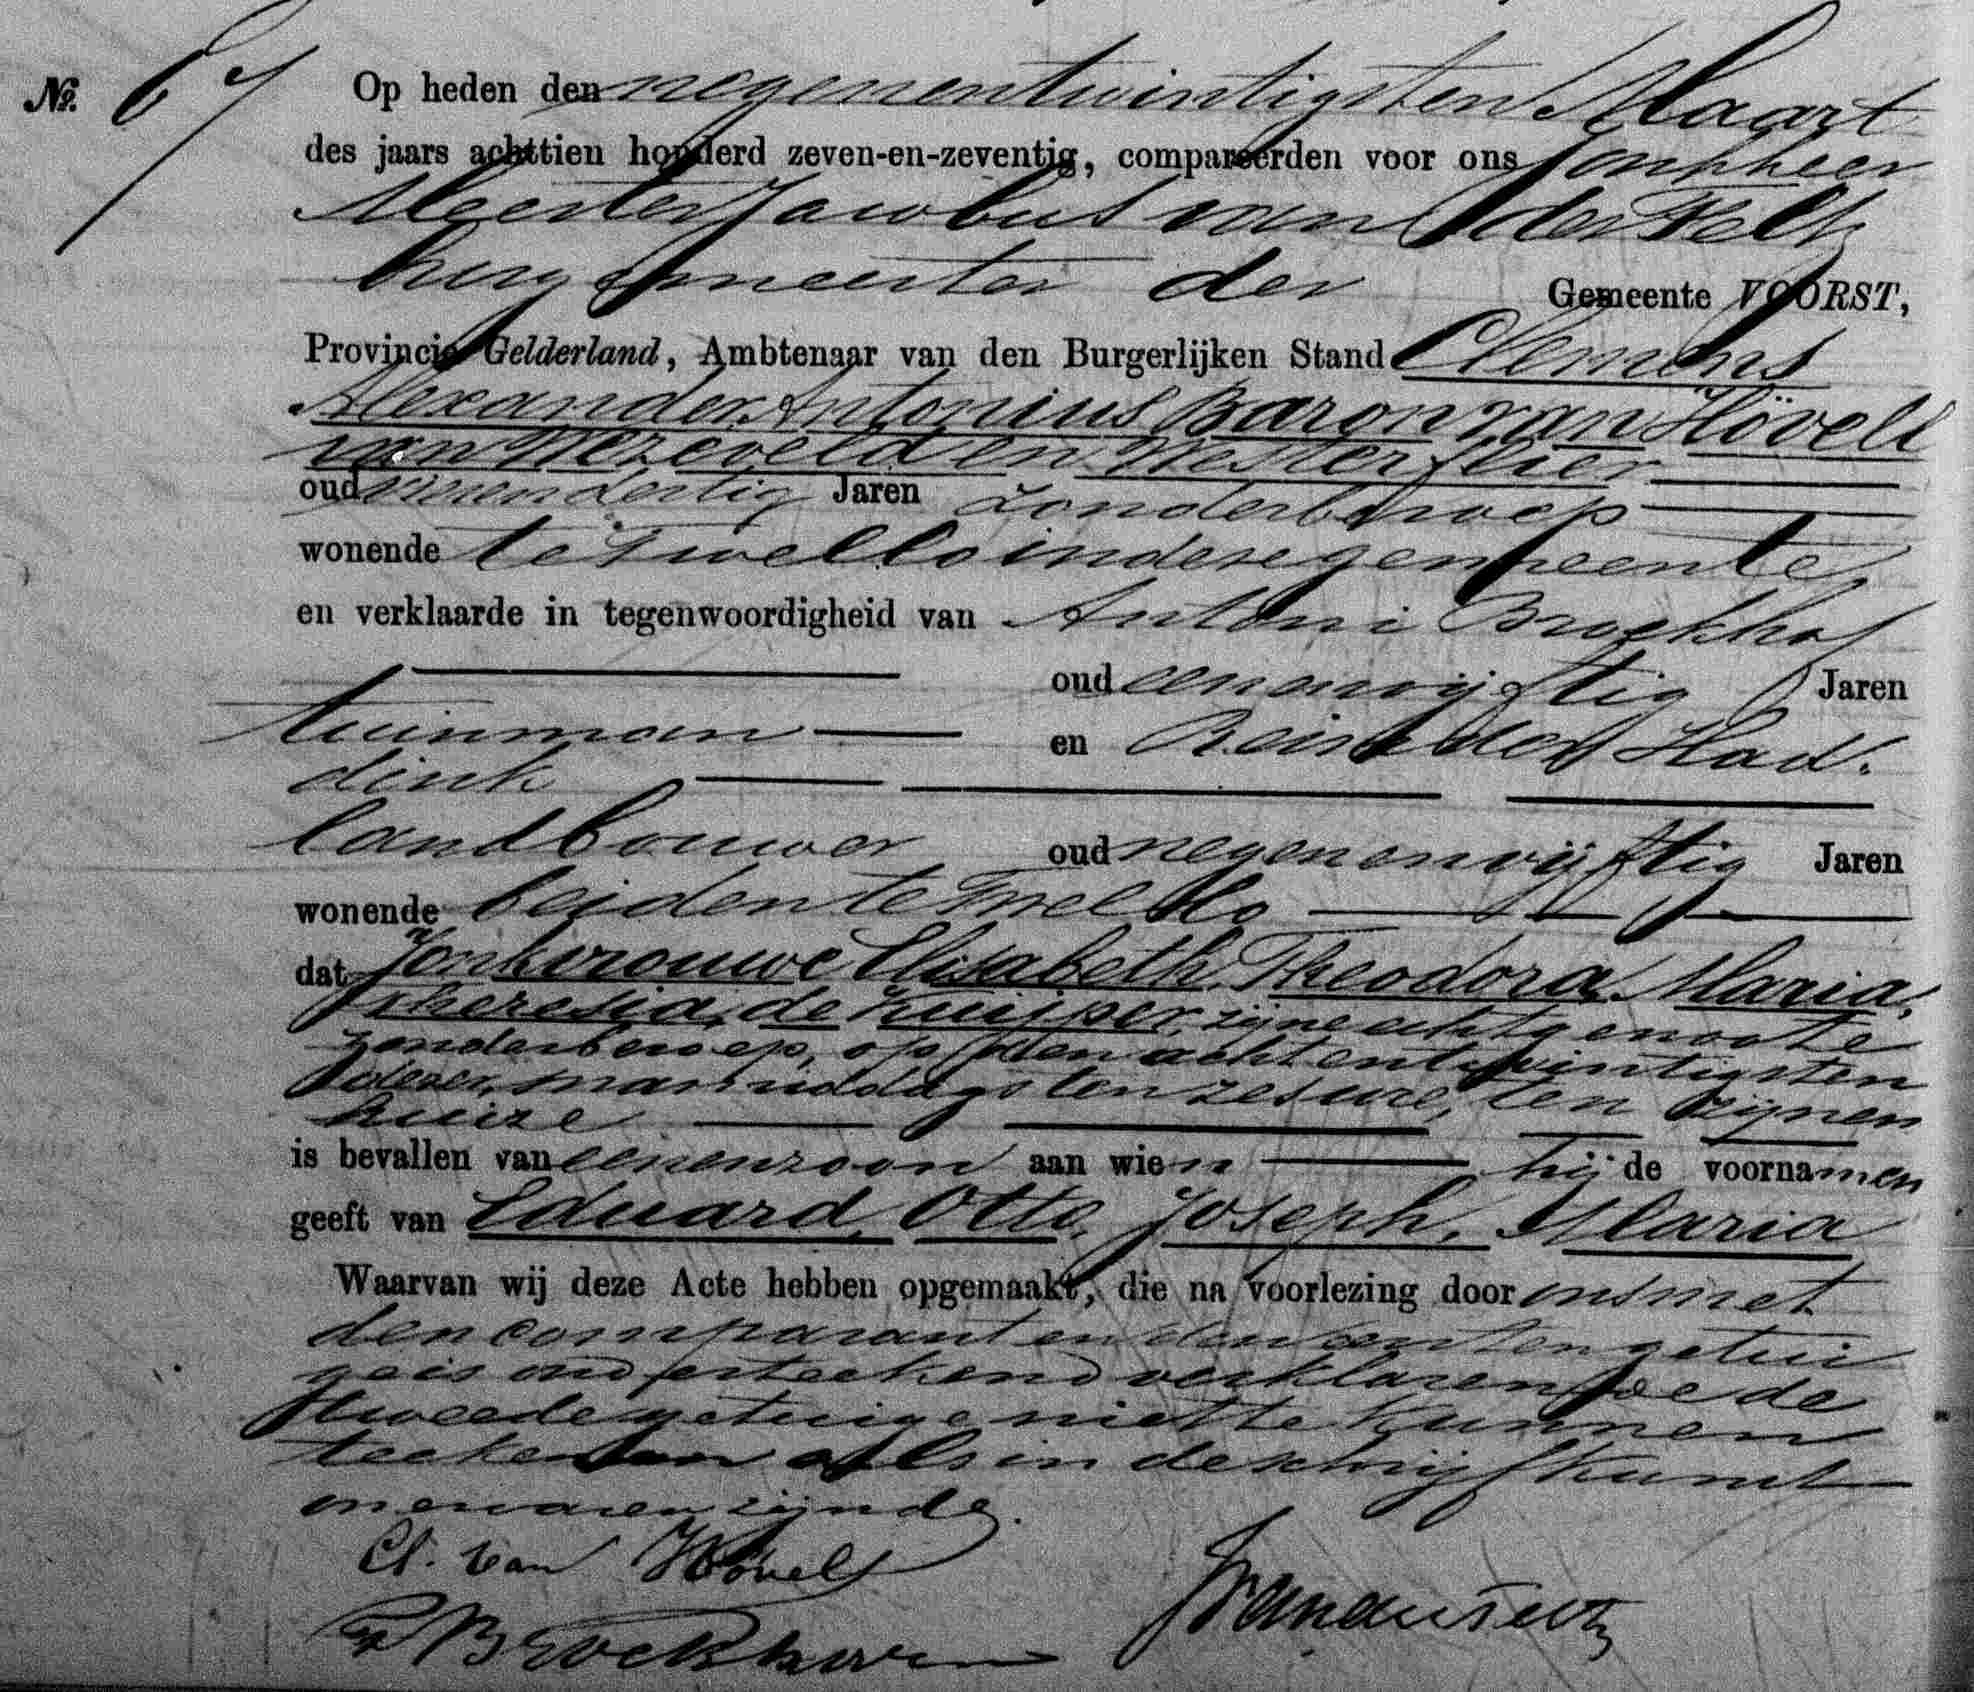 No. 67
Op heden den negenentwintigsten Maart
des jaars achttien honderd zeven-en-zeventig, compareerden voor ons Jonkheer
Meester Jacobus van der Feltz
burgemeester der Gemeente VOORST,
Provincie Gelderland, Ambtenaar van den Burgerlijken Stand Clemens
Alexander Antonius Baron van Hövell
van Wezeveld en Westerflier
oud vierendertig Jaren zonder beroep
wonende te Twello in deze gemeente,
en verklaarde in tegenwoordigheid van Antoni Broekhof
oud eenenvijftig Jaren
tuinman en Reinder Had-
dink
landbouwer oud negenenvijftig Jaren
wonende beiden te Twello
dat Jonkvrouwe Elisabeth, Theodora, Maria,
Theresia, de Kuijper, zijne echtgenoote
zonder beroep, op den achtentwintigsten
dezer, namiddags ten zes ure, ten zijnen
huize
is bevallen van eenen zoon aan wien hij de voornamen
geeft van Eduard, Otto, Joseph, Maria
Waarvan wij deze Acte hebben opgemaakt, die na voorlezing door ons met
den comparant en den eersten getui
ge is onderteekend verklarende de
tweede getuige niet te kunnen
teekenen als in de schrijfkunst
onervaren zijnde.
Cl. van Hövell
Broekhuven